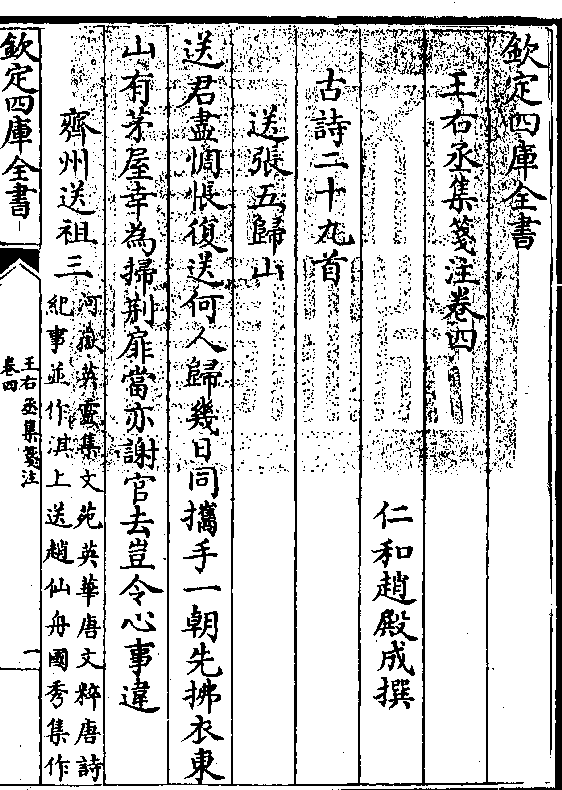 欽定四庫全書
王右丞集箋注卷四
仁和趙殿成撰
古詩二十九首
送張五歸山
送君盡惆悵復送何人歸幾日同攜手一朝先拂衣東
山有茅屋幸為掃荆扉當亦謝官去豈令心事違
齊州送祖三
河嶽英靈集文苑英華唐文粹唐詩
紀事並作淇上送趙仙舟國秀集作
欽定四庫全書
王右丞集箋注
卷四
一